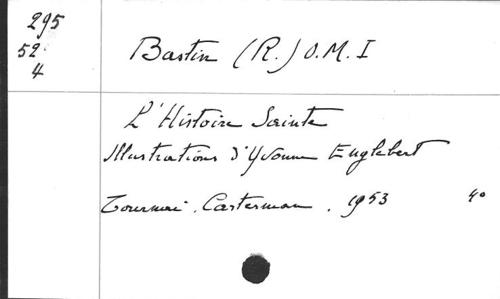 295
52
4
Bastin (R.) O.M.I
L'Histoire Sainte
Illustrations d'Yvonne Englebert
Tournai. Casterman. 1953 4°